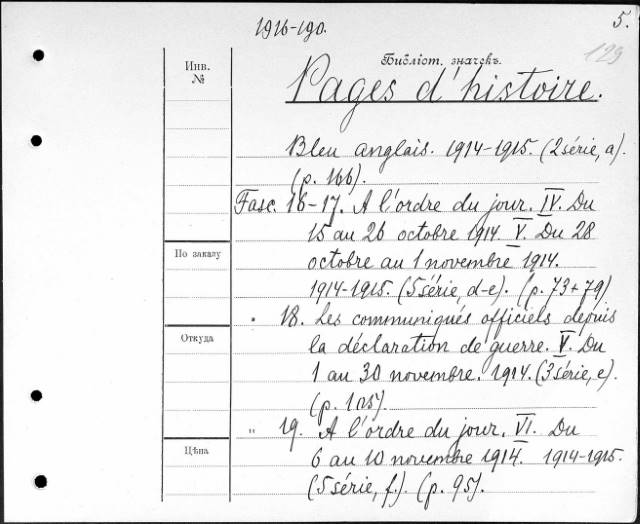 1916-190.
5.
129
Библіот. значекъ.
Инв.
№
Pages d'histoire.
Bleu anglais. 1914-1915. (2série, a).
(p. 166).
Fasc. 16-17. A l'ordre du jour. IV. Du
15 au 26 octobre 1914. V. Du 28
По заказу
octobre au 1 novembre 1914.
1914-1915. (5série, d-e). (p. 73+79)
" 18. Les communiqués officiels depuis
Откуда
la déclaration de guerre. V. Du
1 au 30 novembre. 1914. (3série, e).
(p. 105).
" 19. A l'ordre du jour. VI. Du
Цѣна
6 au 10 novembre 1914. 1914-1915.
(5série, f.). (p. 95).